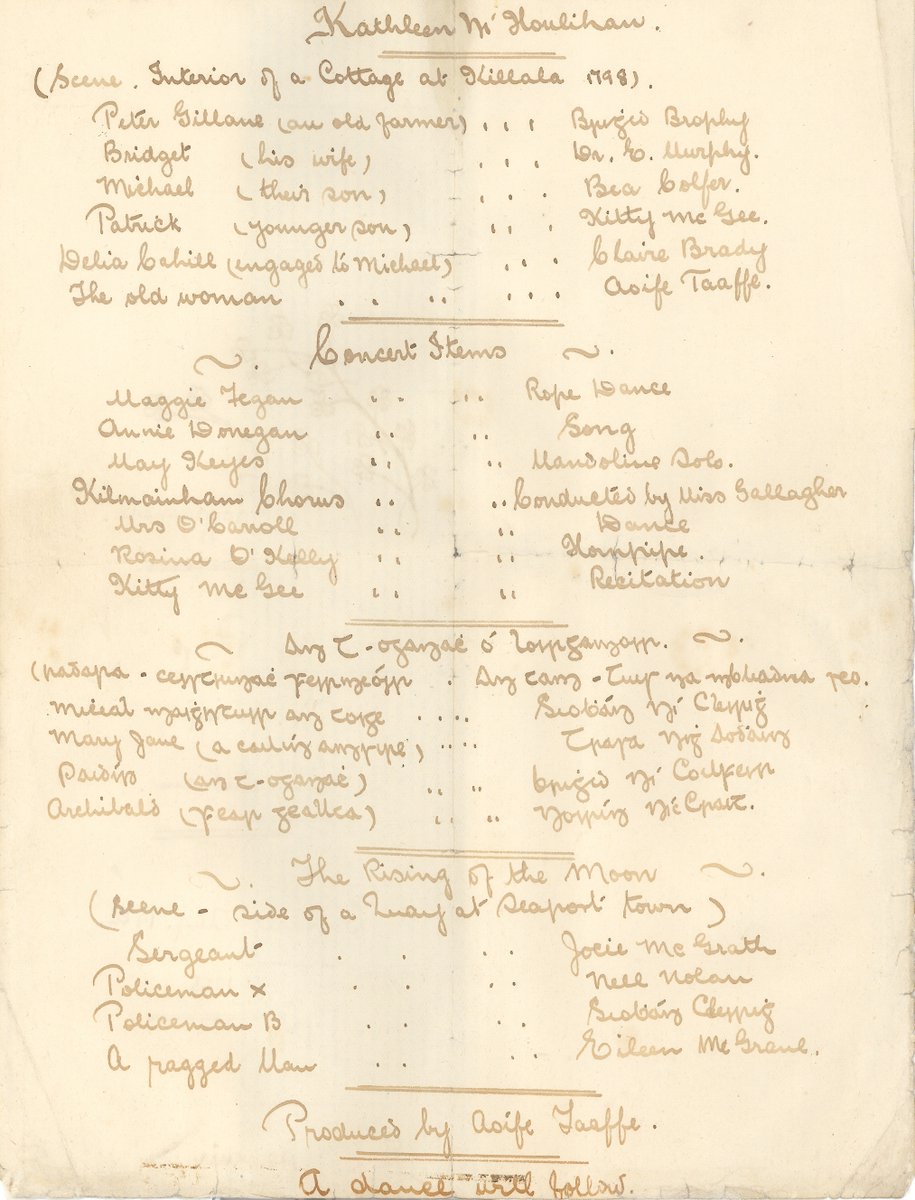 Kathleen Ní Houlihan.
(Scene. Interior of a Cottage at Killala 1798).
Peter Gillane (an old farmer) . . . Brigid Brophy
Bridget (his wife) . . . Dr. E. Murphy.
Michael (their son) . . . Bea Colfer.
Patrick (younger son) . . . Kitty Mc Gee.
Delia Cahill (engaged to Michael) . . . Claire Brady
The old woman . . . . . . . Aoife Taaffe.
~. Concert Items ~.
Maggie Fegan . . . . Rope Dance
Annie Donegan . . . . Song
May Keyes . . . . Mandoline Solo.
Kilmainham Chorus . . . . Conducted by Miss Gallagher
Mrs O'Carroll . . . . Dance
Rosina O'Kelly . . . . Hornpipe.
Kitty Mc Gee . . . . Recitation
~ An t-oganaċ ó ~.
(radarc - . An t-am - na mbliadna seo.
Míceál . . . . Siobán Ní
Mary Jane (a cailín aimsire) . . . . Níg
Paidín (an t-oganaċ) . . . . Brigid Ní
Archibald (fear gealtca) . . . . Nóirín
~. The Rising of the Moon ~.
(Scene - side of a Quay at Seaport town)
Sergeant . . . . Josie Mc Grath
Policeman x . . . . Nell Nolan
Policeman B . . . . Siobán
A ragged Man . . . . Eileen Mc Grane.
Produced by Aoife Taaffe.
A dance will follow.